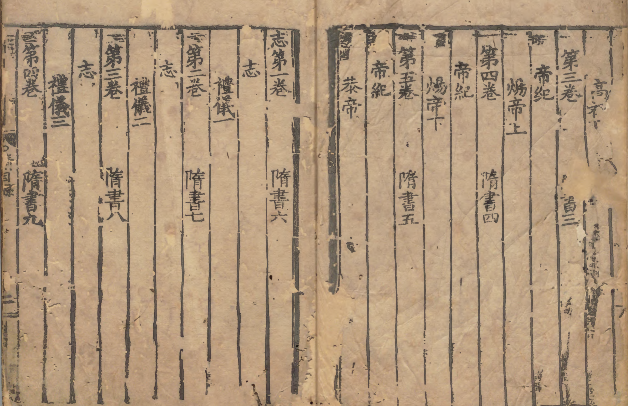 高祖下
第三卷 書三
帝紀
煬帝上
第四卷 隋書四
帝紀
煬帝下
第五卷 隋書五
帝紀
恭帝
志第一卷 隋書六
志
禮儀一
第二卷 隋書七
志
禮儀二
第三卷 隋書八
志
禮儀三
第四卷 隋書九